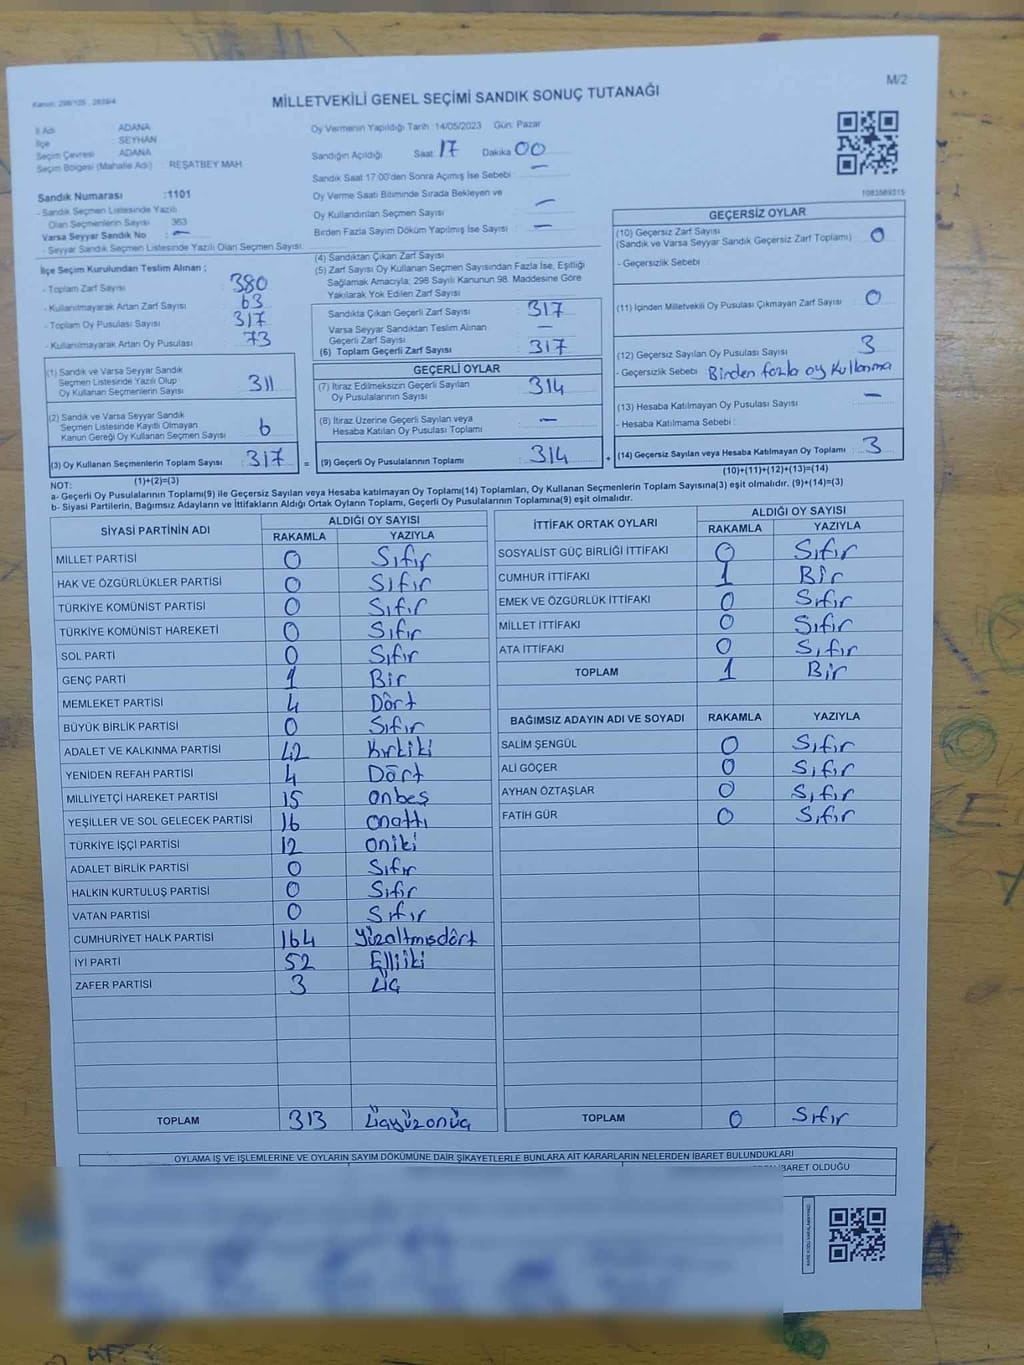 Kanun: 298/105 , 2839/4
M/2
MİLLETVEKİLİ GENEL SEÇİMİ SANDIK SONUÇ TUTANAĞI
İl Adı : ADANA
İlçe : SEYHAN
Seçim Çevresi : ADANA
Seçim Bölgesi (Mahalle Adı) : REŞATBEY MAH.
Oy Vermenin Yapıldığı Tarih :14/05/2023 Gün: Pazar
Sandığın Açıldığı Saat 17 Dakika 00
Sandık Saat 17:00'den Sonra Açımış İse Sebebi : —
Oy Verme Saati Bitiminde Sırada Bekleyen ve
Oy Kullandırılan Seçmen Sayısı : —
Birden Fazla Sayım Döküm Yapılmış İse Sayısı : —
1083589315
Sandık Numarası :1101
- Sandık Seçmen Listesinde Yazılı
Olan Seçmenlerin Sayısı 363
Varsa Seyyar Sandık No : —
- Seyyar Sandık Seçmen Listesinde Yazılı Olan Seçmen Sayısı:
İlçe Seçim Kurulundan Teslim Alınan ;
- Toplam Zarf Sayısı : 380
- Kullanılmayarak Artan Zarf Sayısı : 63
- Toplam Oy Pusulası Sayısı : 317
- Kullanılmayarak Artan Oy Pusulası : 73
(1) Sandık ve Varsa Seyyar Sandık
Seçmen Listesinde Yazılı Olup
Oy Kullanan Seçmenlerin Sayısı : 311
(2) Sandık ve Varsa Seyyar Sandık
Seçmen Listesinde Kayıtlı Olmayan
Kanun Gereği Oy Kullanan Seçmen Sayısı : 6
(3) Oy Kullanan Seçmenlerin Toplam Sayısı : 317
(1)+(2)=(3)
(4) Sandıktan Çıkan Zarf Sayısı :
(5) Zarf Sayısı Oy Kullanan Seçmen Sayısından Fazla İse, Eşitliği
Sağlamak Amacıyla; 298 Sayılı Kanunun 98. Maddesine Göre
Yakılarak Yok Edilen Zarf Sayısı :
Sandıkta Çıkan Geçerli Zarf Sayısı : 317
Varsa Seyyar Sandıktan Teslim Alınan
Geçerli Zarf Sayısı : —
(6) Toplam Geçerli Zarf Sayısı : 317
GEÇERLİ OYLAR
(7) İtiraz Edilmeksizin Geçerli Sayılan
Oy Pusulalarının Sayısı : 314
(8) İtiraz Üzerine Geçerli Sayılan veya
Hesaba Katılan Oy Pusulası Toplamı : —
= (9) Geçerli Oy Pusulalarının Toplamı : 314
GEÇERSİZ OYLAR
(10) Geçersiz Zarf Sayısı
(Sandık ve Varsa Seyyar Sandık Geçersiz Zarf Toplamı) : 0
- Geçersizlik Sebebi :
(11) İçinden Milletvekili Oy Pusulası Çıkmayan Zarf Sayısı : 0
(12) Geçersiz Sayılan Oy Pusulası Sayısı : 3
- Geçersizlik Sebebi : Birden fazla oy kullanma
(13) Hesaba Katılmayan Oy Pusulası Sayısı : —
- Hesaba Katılmama Sebebi :
+ (14) Geçersiz Sayılan veya Hesaba Katılmayan Oy Toplamı : 3
(10)+(11)+(12)+(13)=(14)
NOT:
a- Geçerli Oy Pusulalarının Toplamı(9) ile Geçersiz Sayılan veya Hesaba katılmayan Oy Toplamı(14) Toplamları, Oy Kullanan Seçmenlerin Toplam Sayısına(3) eşit olmalıdır. (9)+(14)=(3)
b- Siyasi Partilerin, Bağımsız Adayların ve İttifakların Aldığı Ortak Oyların Toplamı, Geçerli Oy Pusulalarının Toplamına(9) eşit olmalıdır.
SİYASİ PARTİNİN ADI ALDIĞI OY SAYISI
RAKAMLA YAZIYLA
MİLLET PARTİSİ 0 Sıfır
HAK VE ÖZGÜRLÜKLER PARTİSİ 0 Sıfır
TÜRKİYE KOMÜNİST PARTİSİ 0 Sıfır
TÜRKİYE KOMÜNİST HAREKETİ 0 Sıfır
SOL PARTİ 0 Sıfır
GENÇ PARTİ 1 Bir
MEMLEKET PARTİSİ 4 Dört
BÜYÜK BİRLİK PARTİSİ 0 Sıfır
ADALET VE KALKINMA PARTİSİ 42 Kırkiki
YENİDEN REFAH PARTİSİ 4 Dört
MİLLİYETÇİ HAREKET PARTİSİ 15 onbeş
YEŞİLLER VE SOL GELECEK PARTİSİ 16 onaltı
TÜRKİYE İŞÇİ PARTİSİ 12 oniki
ADALET BİRLİK PARTİSİ 0 Sıfır
HALKIN KURTULUŞ PARTİSİ 0 Sıfır
VATAN PARTİSİ 0 Sıfır
CUMHURİYET HALK PARTİSİ 164 Yüzaltmışdört
İYİ PARTİ 52 Elliiki
ZAFER PARTİSİ 3 Üç
TOPLAM 313 Üçyüzonüç
İTTİFAK ORTAK OYLARI ALDIĞI OY SAYISI
RAKAMLA YAZIYLA
SOSYALİST GÜÇ BİRLİĞİ İTTİFAKI 0 Sıfır
CUMHUR İTTİFAKI 1 Bir
EMEK VE ÖZGÜRLÜK İTTİFAKI 0 Sıfır
MİLLET İTTİFAKI 0 Sıfır
ATA İTTİFAKI 0 Sıfır
TOPLAM 1 Bir
BAĞIMSIZ ADAYIN ADI VE SOYADI RAKAMLA YAZIYLA
SALİM ŞENGÜL 0 Sıfır
ALİ GÖÇER 0 Sıfır
AYHAN ÖZTAŞLAR 0 Sıfır
FATİH GÜR 0 Sıfır
TOPLAM 0 Sıfır
OYLAMA İŞ VE İŞLEMLERİNE VE OYLARIN SAYIM DÖKÜMÜNE DAİR ŞİKAYETLERLE BUNLARA AİT KARARLARIN NELERDEN İBARET BULUNDUKLARI
İBARET OLDUĞU